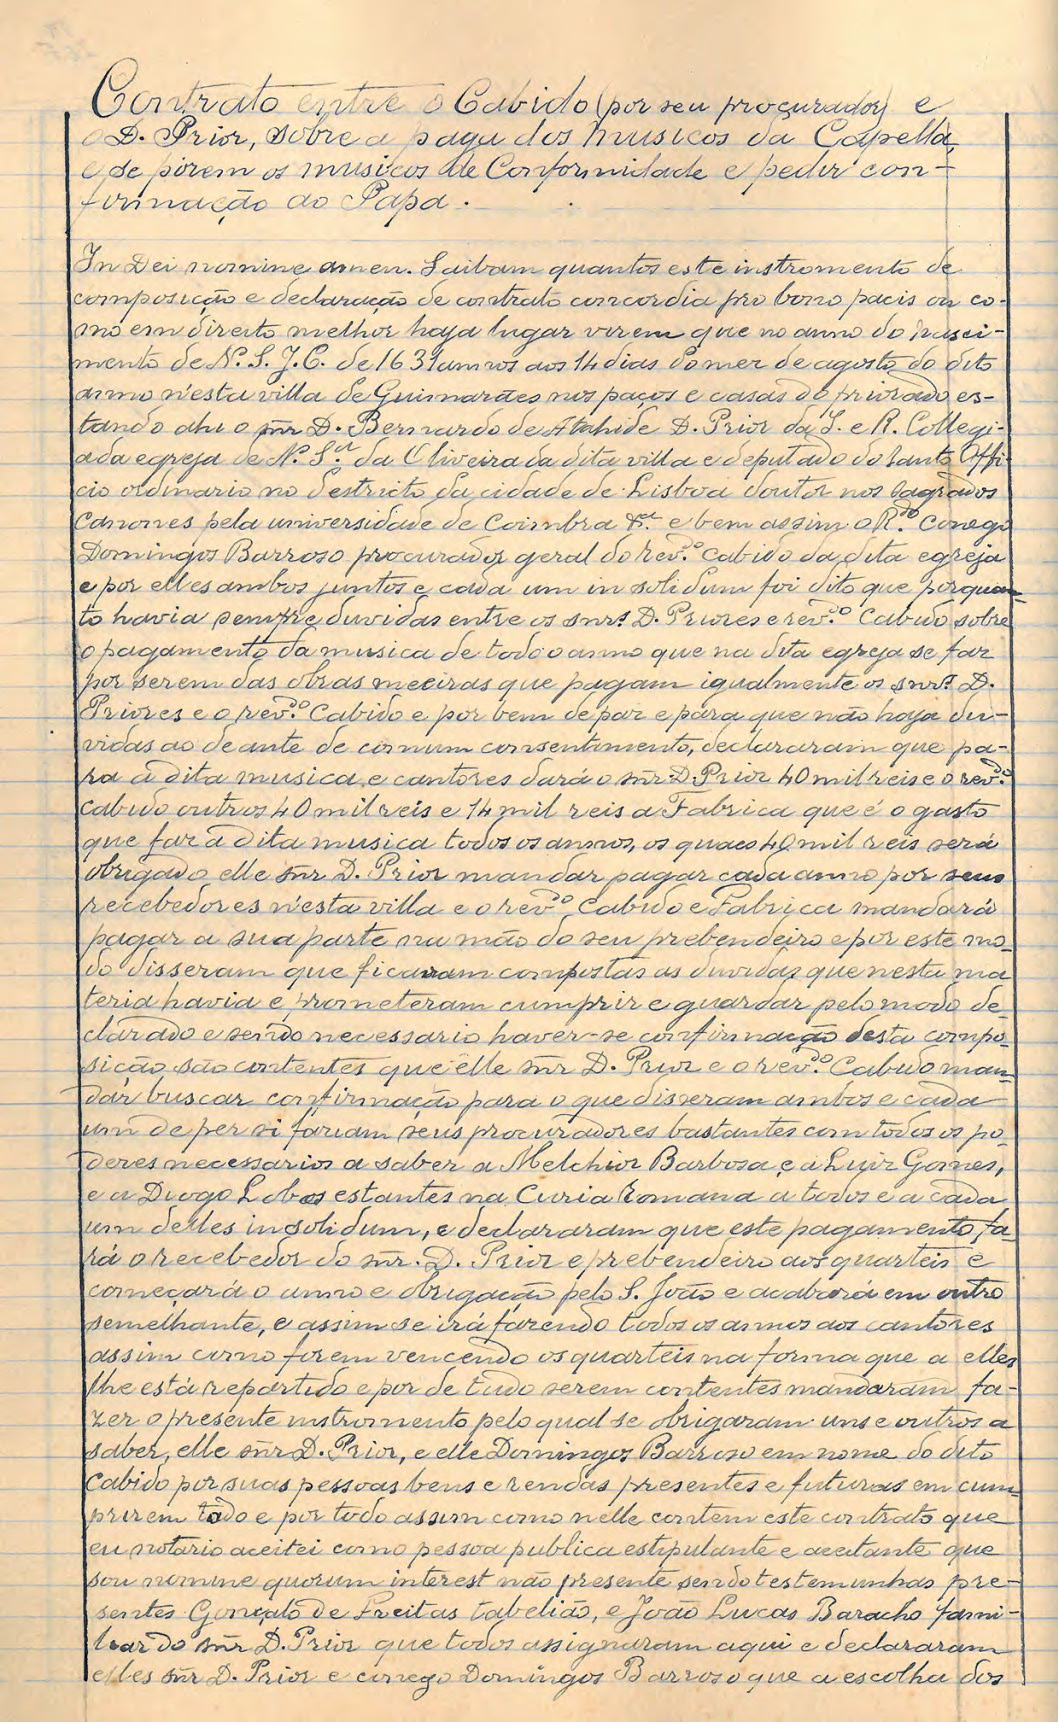 Contrato entre o Cabido (por seu procurador) e
o D. Prior, sobre a paga dos musicos da Capella,
e se pôrem os musicos de Conformidade e pedir con-
firmação ao Papa.
In Dei nomine amen. Saibam quantos este instromento de
composição e declaração de contrato concordia pro bono pacis ou co-
mo em direito melhor haja lugar virem que no anno do nasci-
mento de N. S. J. C. de 1631 annos aos 14 dias do mez de agosto do dito
anno n'esta villa de Guimarães nos paços e casas do priorado es-
tando ahi o snr D. Bernardo de Atahide D. Prior da I. e R. Collegi-
ada egreja de N.ª S.ra da Oliveira da dita villa e deputado do Santo Offi-
cio ordinario no destricto da cidade de Lisboa doutor nos sagrados
Canones pela universidade de Coimbra &.ª e bem assim o R.do Conego
Domingos Barroso procurador geral do rev.do Cabido da dita egreja
e por elles ambos juntos e cada um in solidum foi dito que porquan-
to havia sempre duvidas entre os snrs D. Priores e rev.do Cabido sobre
o pagamento da musica de todo o anno que na dita egreja se faz
por serem das obras meeiras que pagam igualmente os snrs D.
Priores e o rev.do Cabido e por bem de paz e para que não haja du-
vidas ao deante de comum consentimento, declararam que pa-
ra a dita musica e cantores dará o snr D. Prior 40 mil reis e o rev.do
Cabido outros 40 mil reis e 14 mil reis a Fabrica que é o gasto
que faz a dita musica todos os annos, os quaes 40 mil reis será
obrigado elle snr D. Prior mandar pagar cada anno por seus
recebedores n'esta villa e o rev.do Cabido e Fabrica mandará
pagar a sua parte na mão do seu prebendeiro e por este mo-
do disseram que ficavam compostas as duvidas que nesta ma
teria havia e prometeram cumprir e guardar pelo modo de-
clarado e sendo necessario haver-se confirmação desta compo-
sição são contentes que elle snr D. Prior e o rev.do Cabido man-
dar buscar confirmação para o que disseram ambos e cada
um de per si fariam seus procuradores bastantes com todos os po-
deres necessarios a saber a Melchior Barbosa e a Luiz Gomes,
e a Diogo Lobos estantes na Curia Romana a todos e a cada
um delles in solidum, e declararam que este pagamento fa-
rá o recebedor do snr. D. Prior e prebendeiro aos quarteis e
começará o anno e obrigação pelo S. João e acabará em outro
semelhante, e assim se irá fazendo todos os annos aos cantores
assim como forem vencendo os quarteis na forma que a elles
lhe está repartido e por de tudo serem contentes mandaram fa-
zer o presente instromento pelo qual se obrigaram uns e outros a
saber, elle snr D. Prior, e elle Domingos Barroso em nome do dito
Cabido por suas pessoas bens e rendas presentes e futuras em cum-
prirem todo e por todo assim como nelle contem este contrato que
eu notario aceitei como pessoa publica estipulante e aceitante que
sou nomine quorum interest não presente sendo testemunhas pre-
sentes Gonçalo de Freitas tabelião, e João Lucas Baracho fami-
liar do snr D. Prior que todos assignaram aqui e declararam
elles snr D. Prior e conego Domingos Barroso que a escolha dos